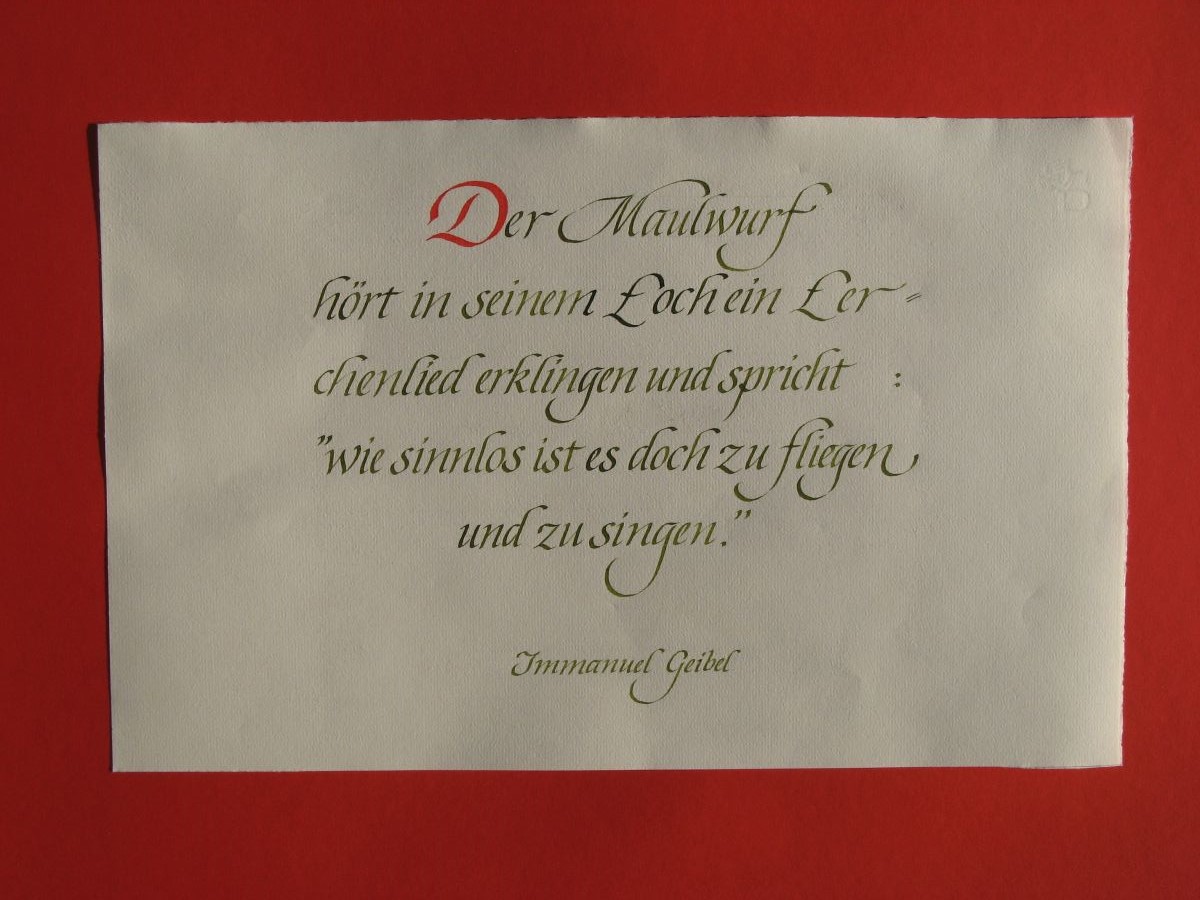 Der Maulwurf
hört in seinem Loch ein Ler=
chenlied erklingen und spricht :
"wie sinnlos ist es doch zu fliegen
und zu singen."
Immanuel Geibel